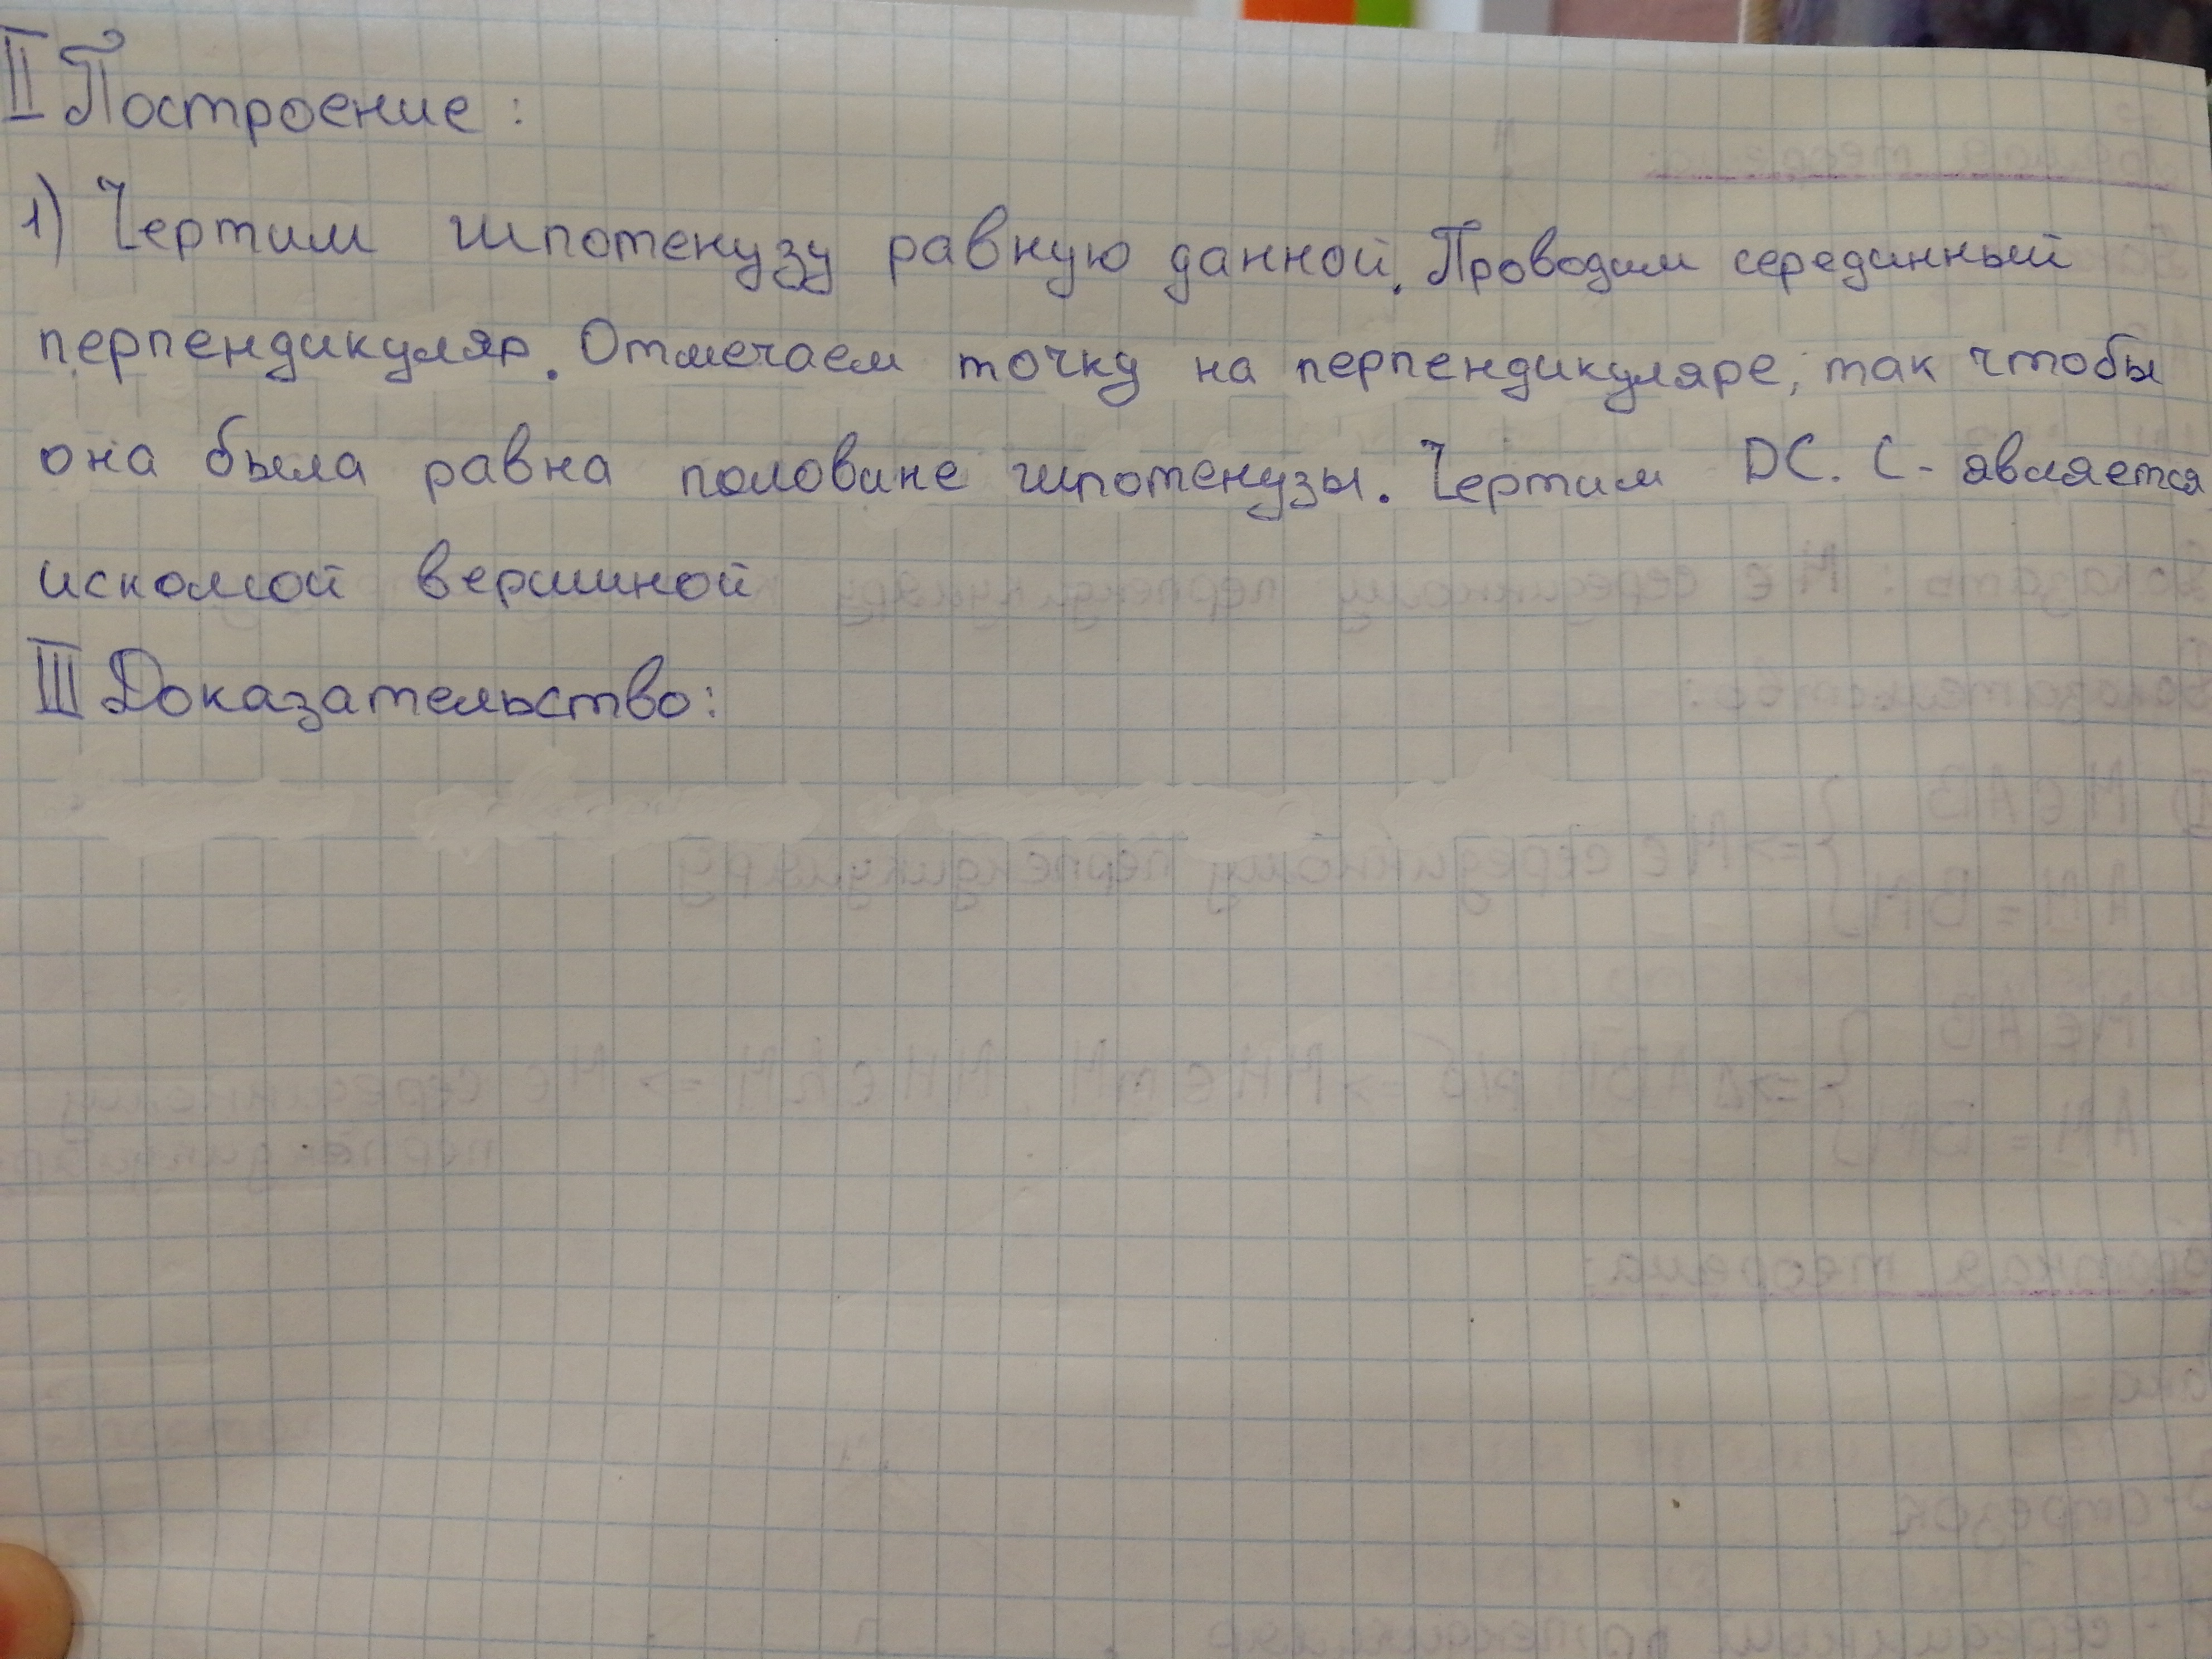 II Построение:
1) Чертим гипотенузу равную данной. Проводим серединный
перпендикуляр. Отмечаем точку на перпендикуляре, так чтобы
она была равна половине гипотенузы. Чертим DC. C - является
искомой вершиной
III Доказательство: